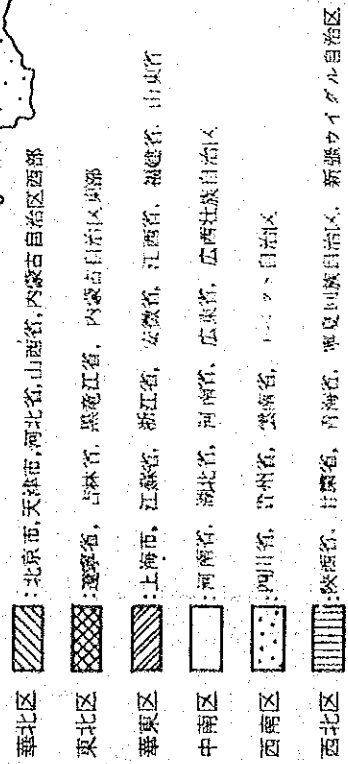 華北区 :北京市,天津市,河北省,山西省,内蒙古自治区西部
東北区 :遼寧省, 吉林省, 黒竜江省, 内蒙古自治区東部
華東区 :上海市, 江蘇省, 浙江省, 安徽省, 江西省, 福建省, 山東省
中南区 :河南省, 湖北省, 河南省, 広東省, 広西壮族自治区
西南区 :四川省, 貴州省, 雲南省, チベット自治区
西北区 :陝西省, 甘粛省, 青海省, 寧夏回族自治区, 新疆ウイグル自治区